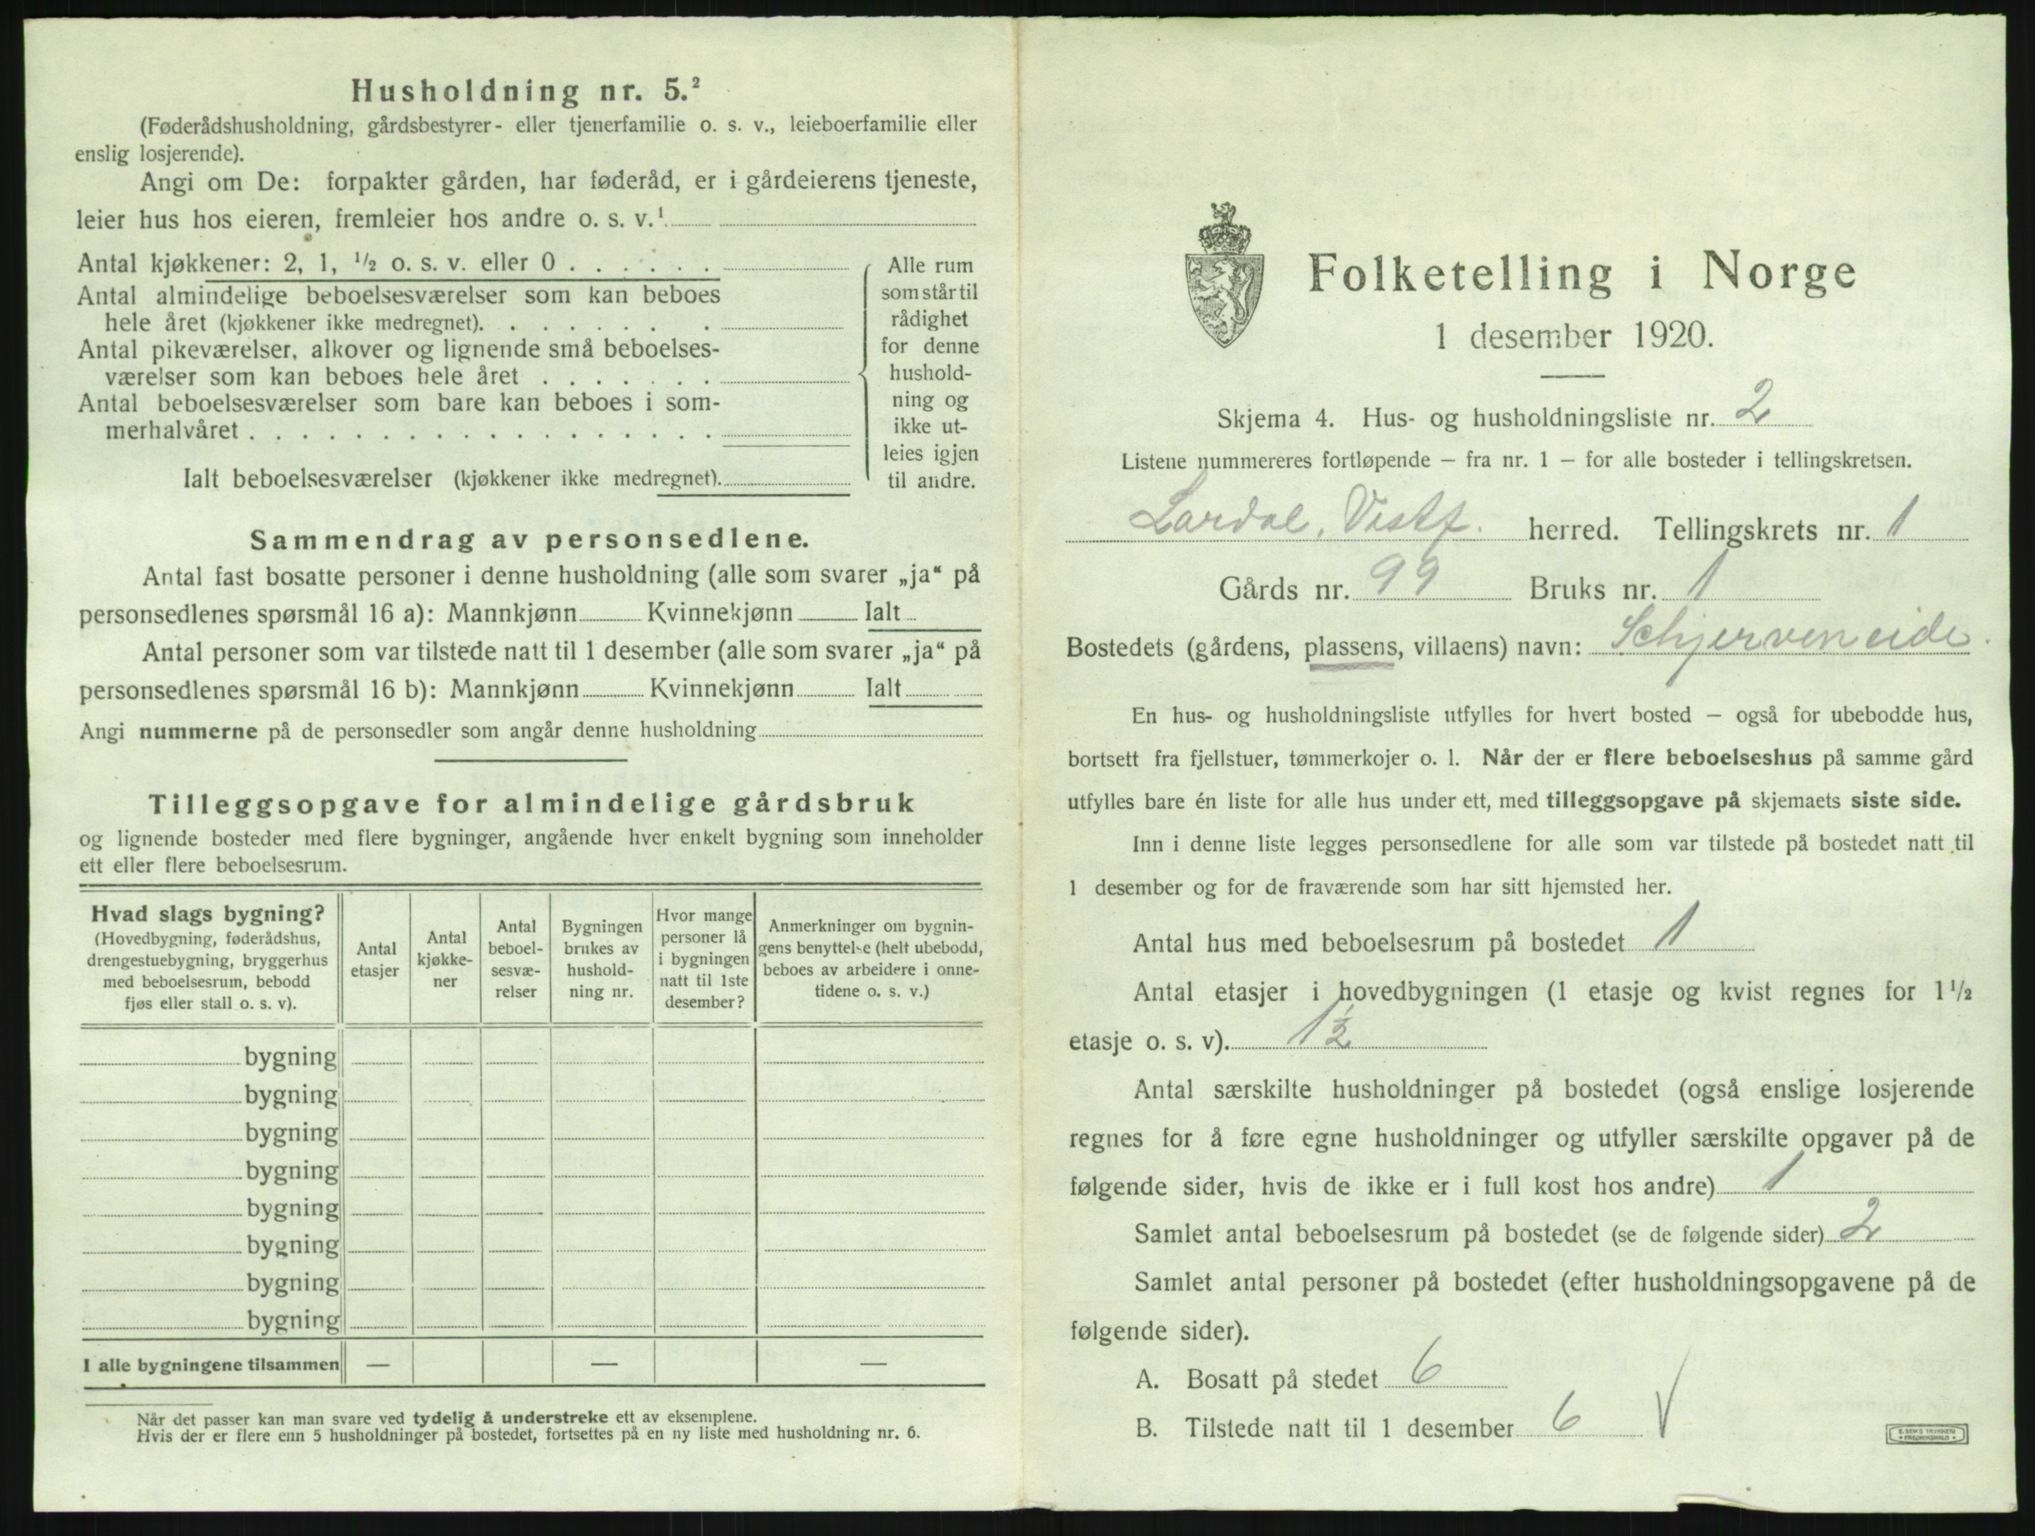 Husholdning nr. 5.²
(Føderådshusholdning, gårdsbestyrer- eller tjenerfamilie o. s. v., leieboerfamilie eller
enslig losjerende).
Angi om De: forpakter gården, har føderåd, er i gårdeierens tjeneste,
leier hus hos eieren, fremleier hos andre o. s. v.¹
Antal kjøkkener: 2, 1, ½ o. s. v. eller 0 . . . . . .
Antal almindelige beboelsesværelser som kan beboes
hele året (kjøkkener ikke medregnet). . . . . . . .
Antal pikeværelser, alkover og lignende små beboelses-
værelser som kan beboes hele året . . . . . . .
Antal beboelsesværelser som bare kan beboes i som-
merhalvåret . . . . . . . . . . . . . . . . . .
Ialt beboelsesværelser (kjøkkener ikke medregnet).
Alle rum
som står til
rådighet
for denne
hushold-
ning og
ikke ut-
leies igjen
til andre.
Sammendrag av personsedlene.
Antal fast bosatte personer i denne husholdning (alle som svarer „ja“ på
personsedlenes spørsmål 16 a): Mannkjønn Kvinnekjønn Ialt
Antal personer som var tilstede natt til 1 desember (alle som svarer „ja“ på
personsedlenes spørsmål 16 b): Mannkjønn Kvinnekjønn Ialt
Angi nummerne på de personsedler som angår denne husholdning
Tilleggsopgave for almindelige gårdsbruk
og lignende bosteder med flere bygninger, angående hver enkelt bygning som inneholder
ett eller flere beboelsesrum.
Hvad slags bygning?
(Hovedbygning, føderådshus,
drengestuebygning, bryggerhus
med beboelsesrum, bebodd
fjøs eller stall o. s. v).
Antal
etasjer
Antal
kjøkke-
ner
Antal
beboel-
sesvæ-
relser
Bygningen
brukes av
hushold-
ning nr.
Hvor mange
personer lå
i bygningen
natt til 1ste
desember?
Anmerkninger om bygnin-
gens benyttelse (helt ubebodd,
beboes av arbeidere i onne-
tidene o. s. v.)
bygning
bygning
bygning
bygning
bygning
bygning
bygning
bygning
I alle bygningene tilsammen — — —
Når det passer kan man svare ved tydelig å understreke ett av eksemplene.
Hvis der er flere enn 5 husholdninger på bostedet, fortsettes på en ny liste med husholdning nr. 6.
Folketelling i Norge
1 desember 1920.
Skjema 4. Hus- og husholdningsliste nr. 2
Listene nummereres fortløpende — fra nr. 1 — for alle bosteder i tellingskretsen.
Lardal, Vestf. herred. Tellingskrets nr. 1
Gårds nr. 99 Bruks nr. 1
Bostedets (gårdens, plassens, villaens) navn: Schjerveneide.
En hus- og husholdningsliste utfylles for hvert bosted — også for ubebodde hus,
bortsett fra fjellstuer, tømmerkojer o. l. Når der er flere beboelseshus på samme gård
utfylles bare én liste for alle hus under ett, med tilleggsopgave på skjemaets siste side.
Inn i denne liste legges personsedlene for alle som var tilstede på bostedet natt til
1 desember og for de fraværende som har sitt hjemsted her.
Antal hus med beboelsesrum på bostedet 1
Antal etasjer i hovedbygningen (1 etasje og kvist regnes for 1½
etasje o. s. v). 1½
Antal særskilte husholdninger på bostedet (også enslige losjerende
regnes for å føre egne husholdninger og utfyller særskilte opgaver på de
følgende sider, hvis de ikke er i full kost hos andre) 1
Samlet antal beboelsesrum på bostedet (se de følgende sider) 2
Samlet antal personer på bostedet (efter husholdningsopgavene på de
følgende sider).
A. Bosatt på stedet 6
B. Tilstede natt til 1 desember 6 V